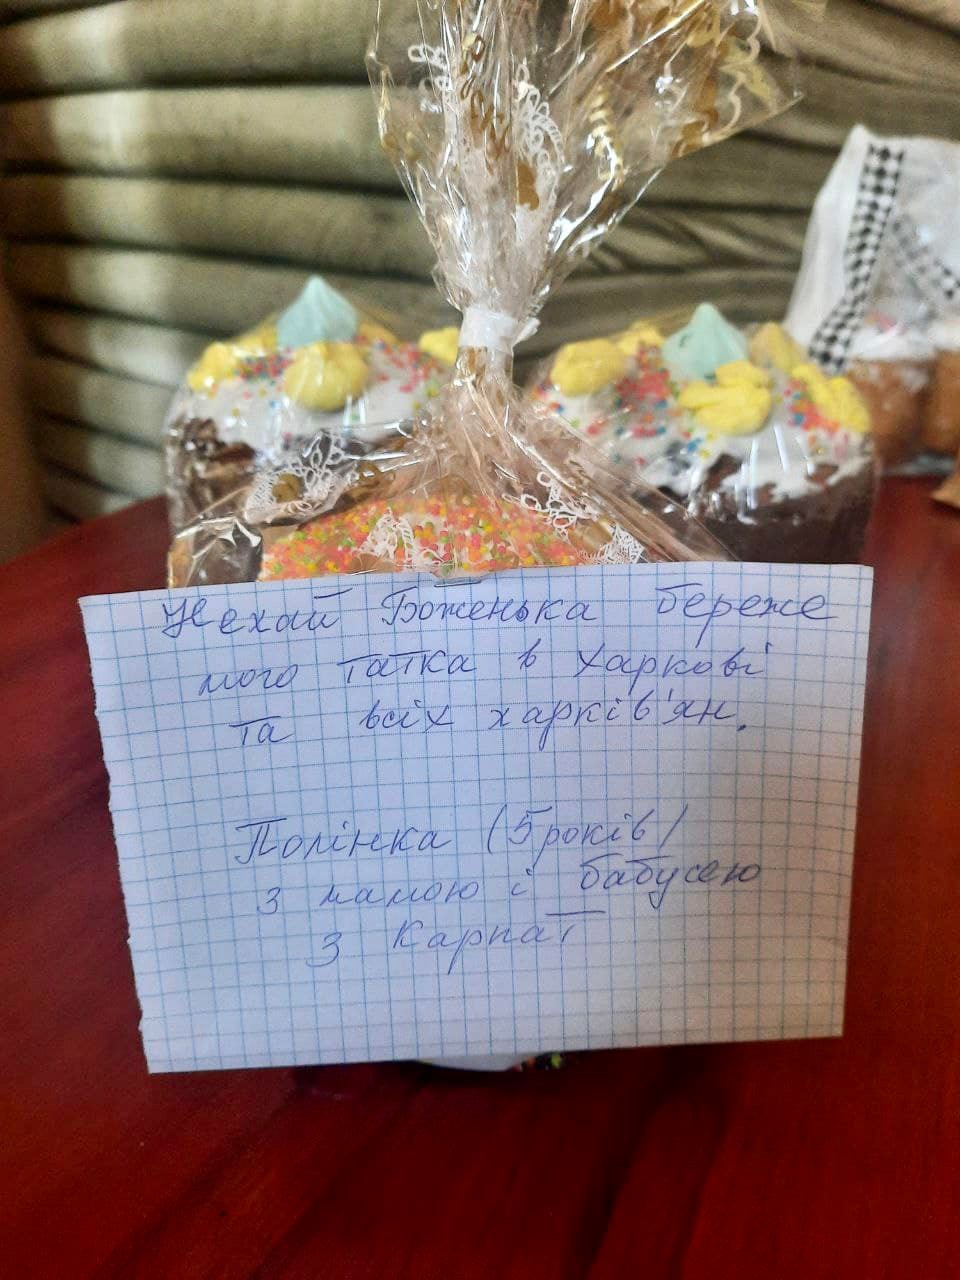 Нехай Боженька береже
мого татка в Харкові
та всіх харків'ян.
Полінка (5 років)
з мамою і бабусею
з Карпат